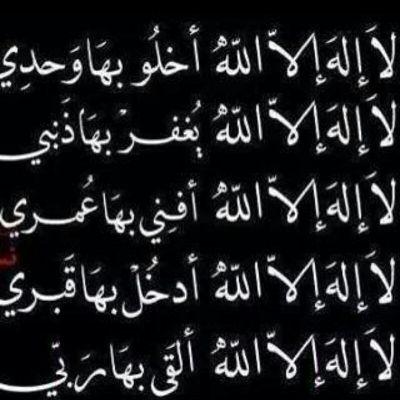 لاَ إِلهَ إِلاَّ اللّهُ أخلُو بهَا وَحدِي
لاَ إِلهَ إِلاَّ اللّهُ يُغفرْ بهَا ذَنبي
لاَ إِلهَ إِلاَّ اللّهُ أفنِي بهَا عُمري
لاَ إِلهَ إِلاَّ اللّهُ أدخُلْ بهَا قَبري
لاَ إِلهَ إِلاَّ اللّهُ ألقَى بهَا رَبّي